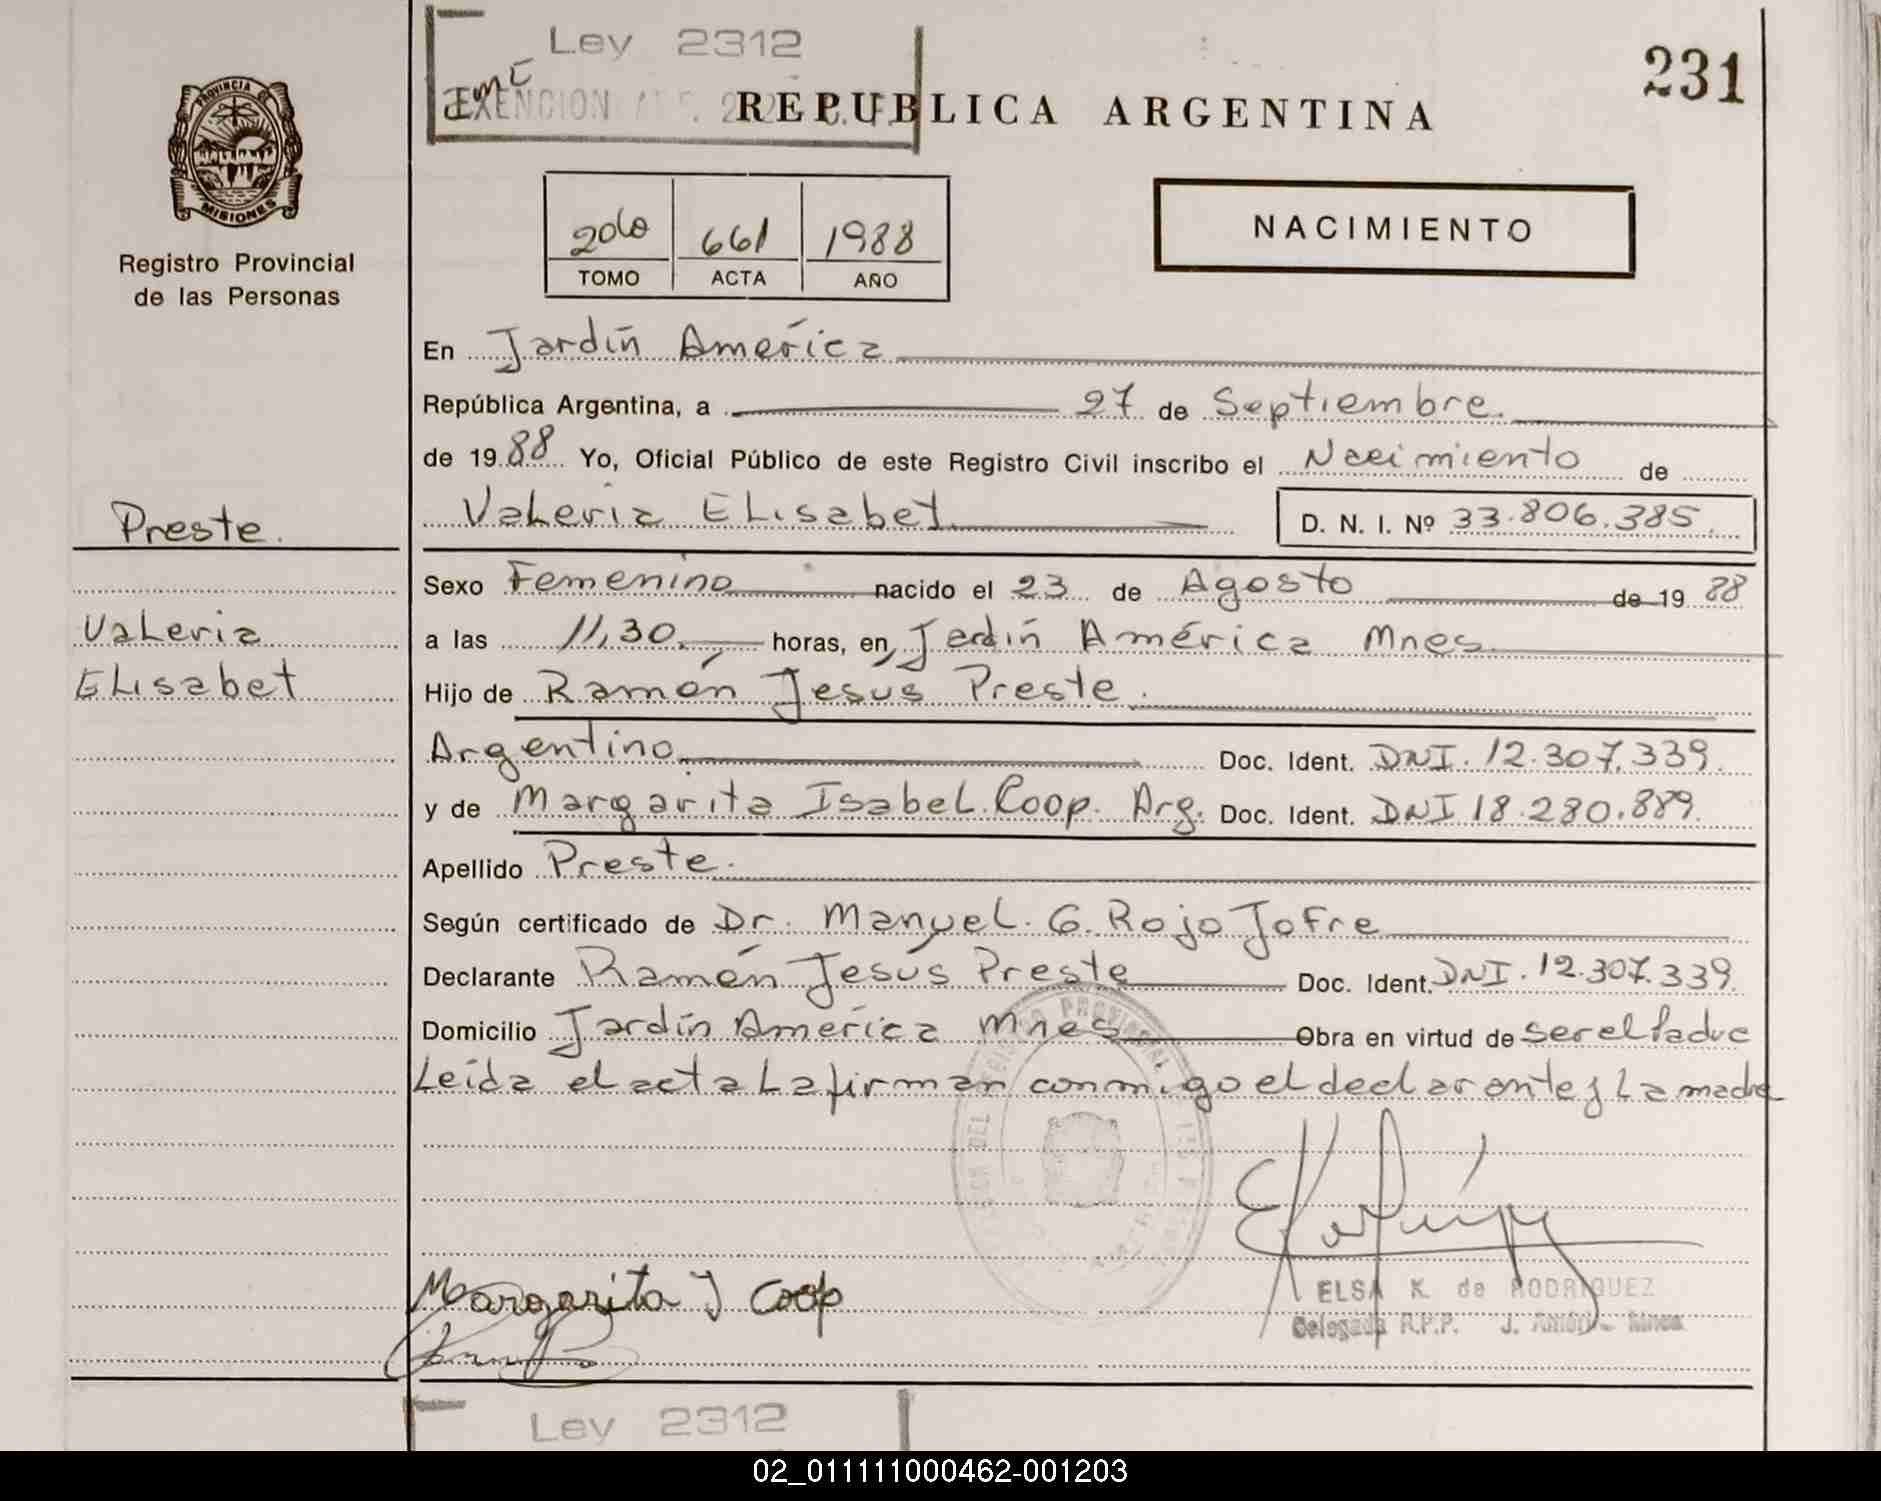 Ley 2312
231
EXENCION
REPUBLICA ARGENTINA
PROVINCIA DE
MISIONES
Registro Provincial
de las Personas
661 1988
TOMO ACTA AÑO
NACIMIENTO
En Jardín América
República Argentina, a 27 de Septiembre.
de 1988 Yo, Oficial Público de este Registro Civil inscribo el Nacimiento de
Preste.
Valeria Elisabet D. N. I. Nº 33.806.385.
Sexo Femenino nacido el 23 de Agosto de 1988
Valeria
a las 11,30. horas, en, Jardín América Mnes
Elisabet
Hijo de Ramón Jesús Preste.
Argentino Doc. Ident. DNI. 12.307.339.
y de Margarita Isabel Coop. Arg. Doc. Ident. DNI 18.280.889.
Apellido Preste.
Según certificado de Dr. Manuel. G. Rojo Jofre
Declarante Ramón Jesús Preste Doc. Ident. DNI. 12.307.339.
Domicilio Jardín América Mnes Obra en virtud de ser el Padre
Leída el acta La firman conmigo el declarante y La madre
Margarita I Coop
ELSA K. de RODRIGUEZ
Delegada R.P.P.
Ley 2312
02_011111000462-001203